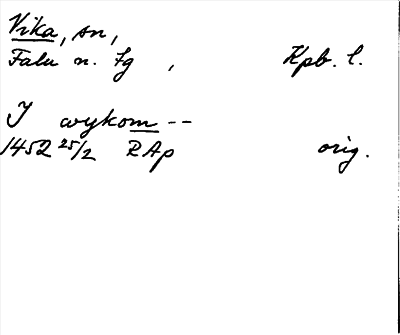 Vika, sn,
Falu n. fg , Kpb. l.
J wykom --
1452 25/2 RAp orig.